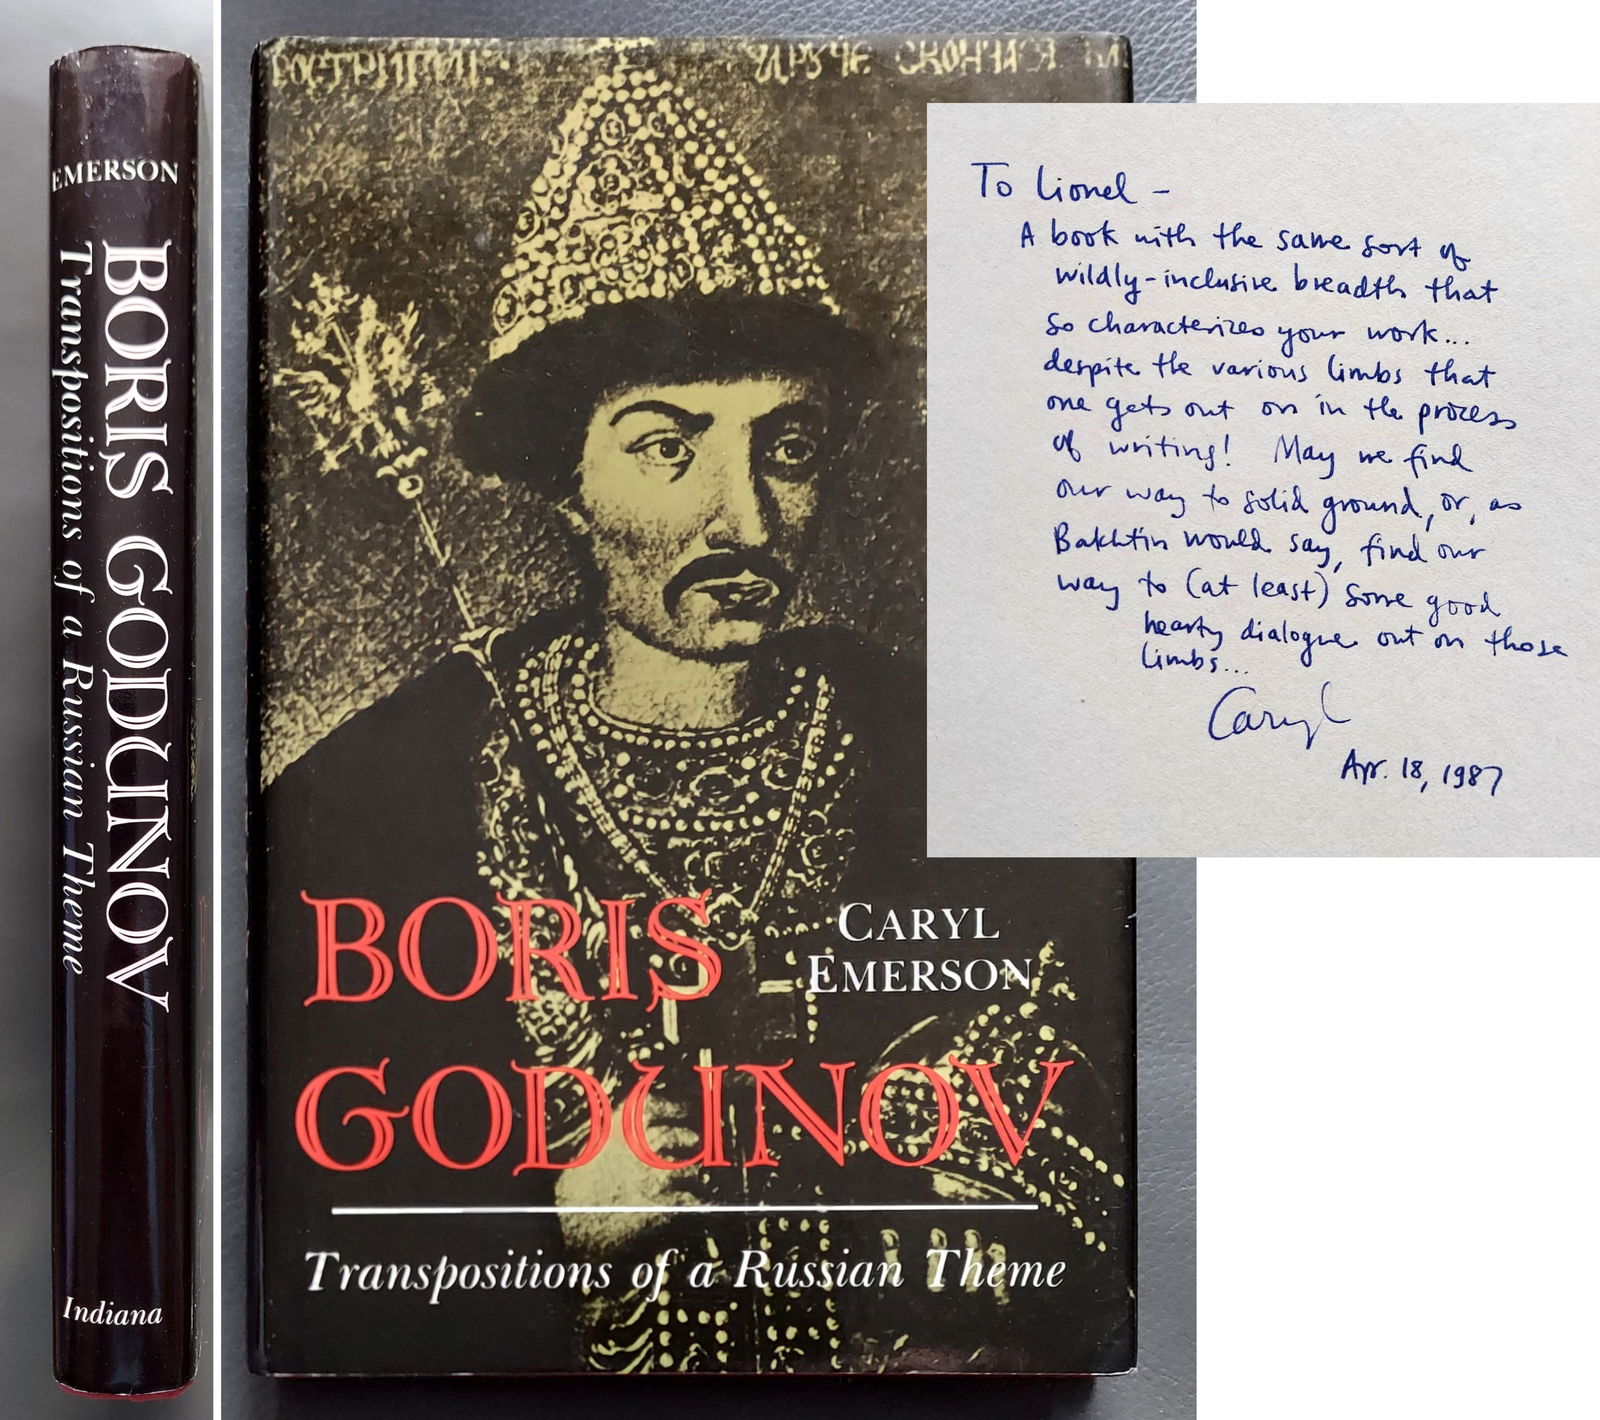 EMERSON
BORIS GODUNOV
Transpositions of a Russian Theme
Indiana
BORIS
GODUNOV
CARYL
EMERSON
Transpositions of a Russian Theme
To Lionel –
A book with the same sort of
wildly-inclusive breadth that
so characterizes your work...
despite the various limbs that
one gets out on in the process
of writing! May we find
our way to solid ground, or, as
Bakhtin would say, find our
way to (at least) some good
hearty dialogue out on those
limbs...
Caryl
Apr. 18, 1987